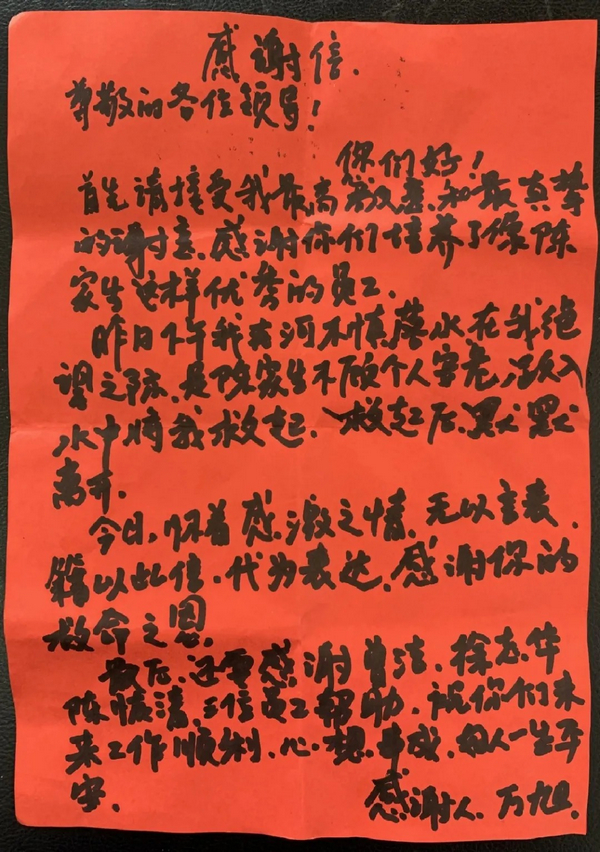 感谢信.
尊敬的各位领导!
你们好!
首先请接受我最高敬意.和最真挚
的谢意.感谢你们培养了像陈
家生这样优秀的员工.
昨日下午我去河不慎落水在我绝
望之际.是陈家生不顾个人安危,跃入
水中将我救起.救起后.默默
离开.
今日,怀着感激之情.无以言表.
籍以此信.代为表达.感谢你的
救命之恩.
最后.还要感谢曾洁.徐志华
陈 清.三位员工帮助.祝你们未
来工作顺利.心想事成.好人一生平
安.
感谢人.万旭.